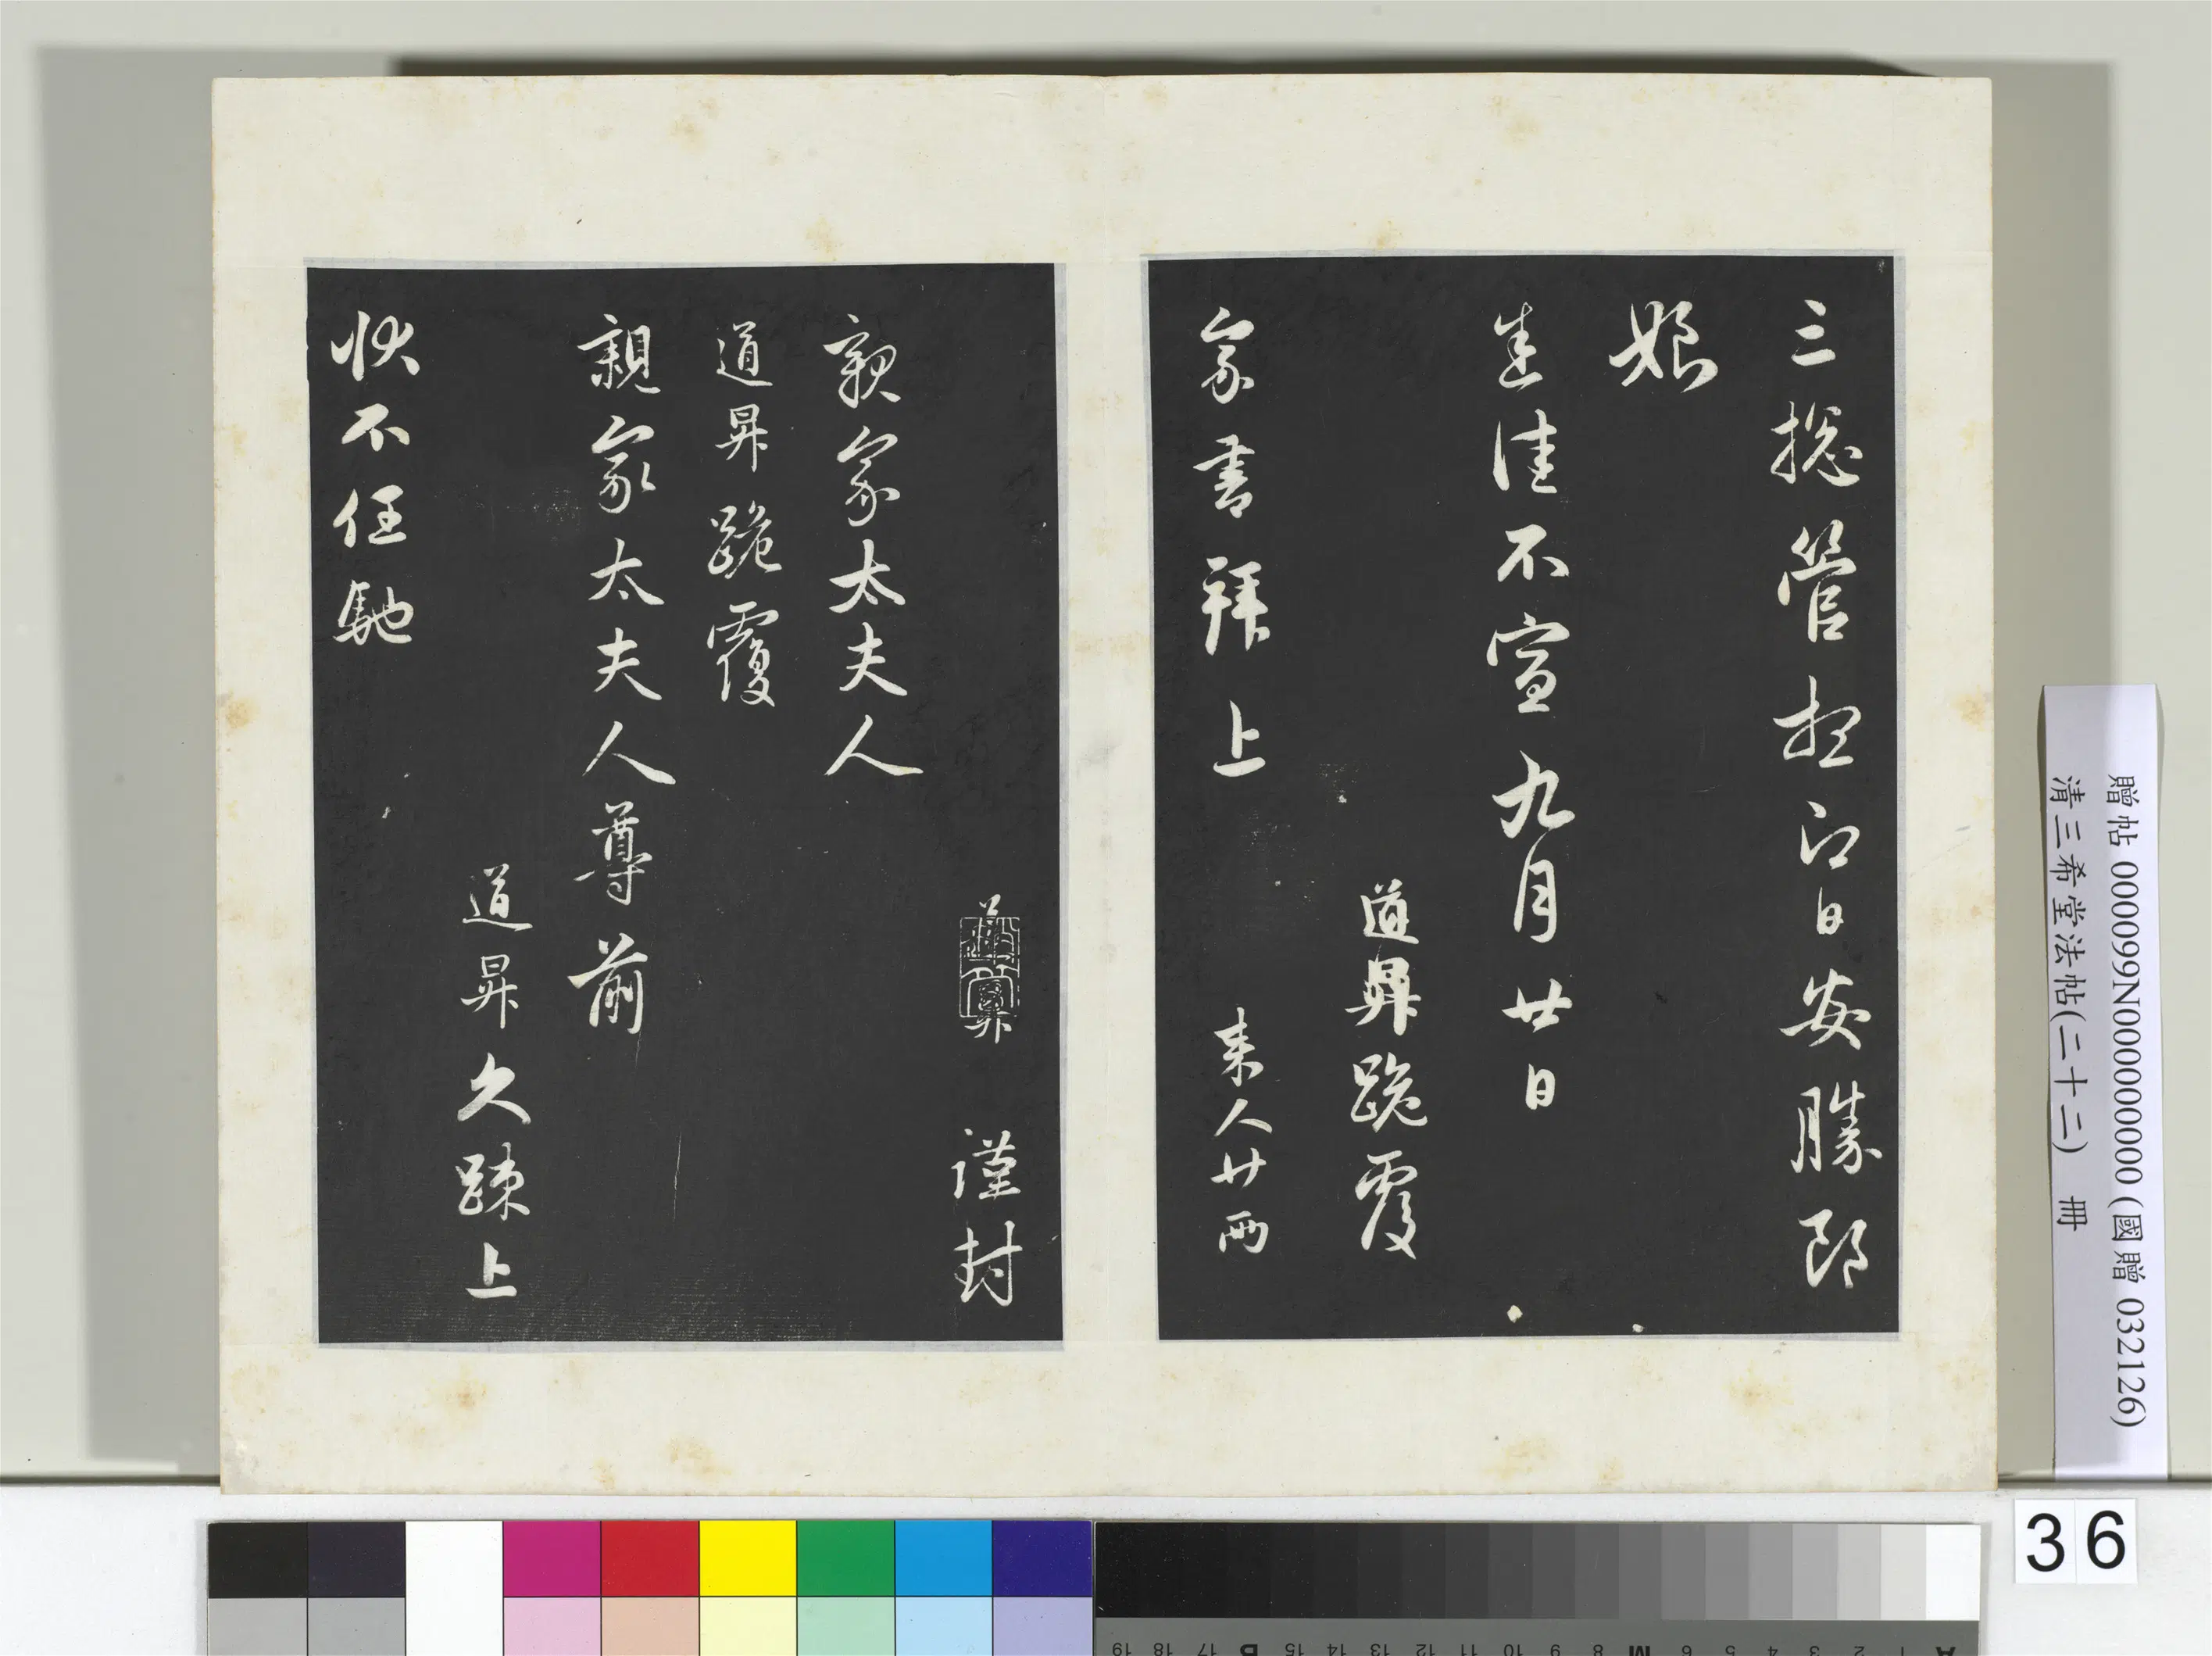 三總管想即日安勝郎
娘
進佳不宣九月廿日
道昇跪覆
家書拜上
來人廿兩
道昇
謹封
親家太夫人
道昇跪覆
親家太夫人尊前
道昇久疎上
狀不任馳
贈帖 000099N000000000 (國贈 032126)
清三希堂法帖(二十二) 冊
36
A 1 2 3 4 5 6 M 8 9 10 11 12 13 14 15 B 17 18 19